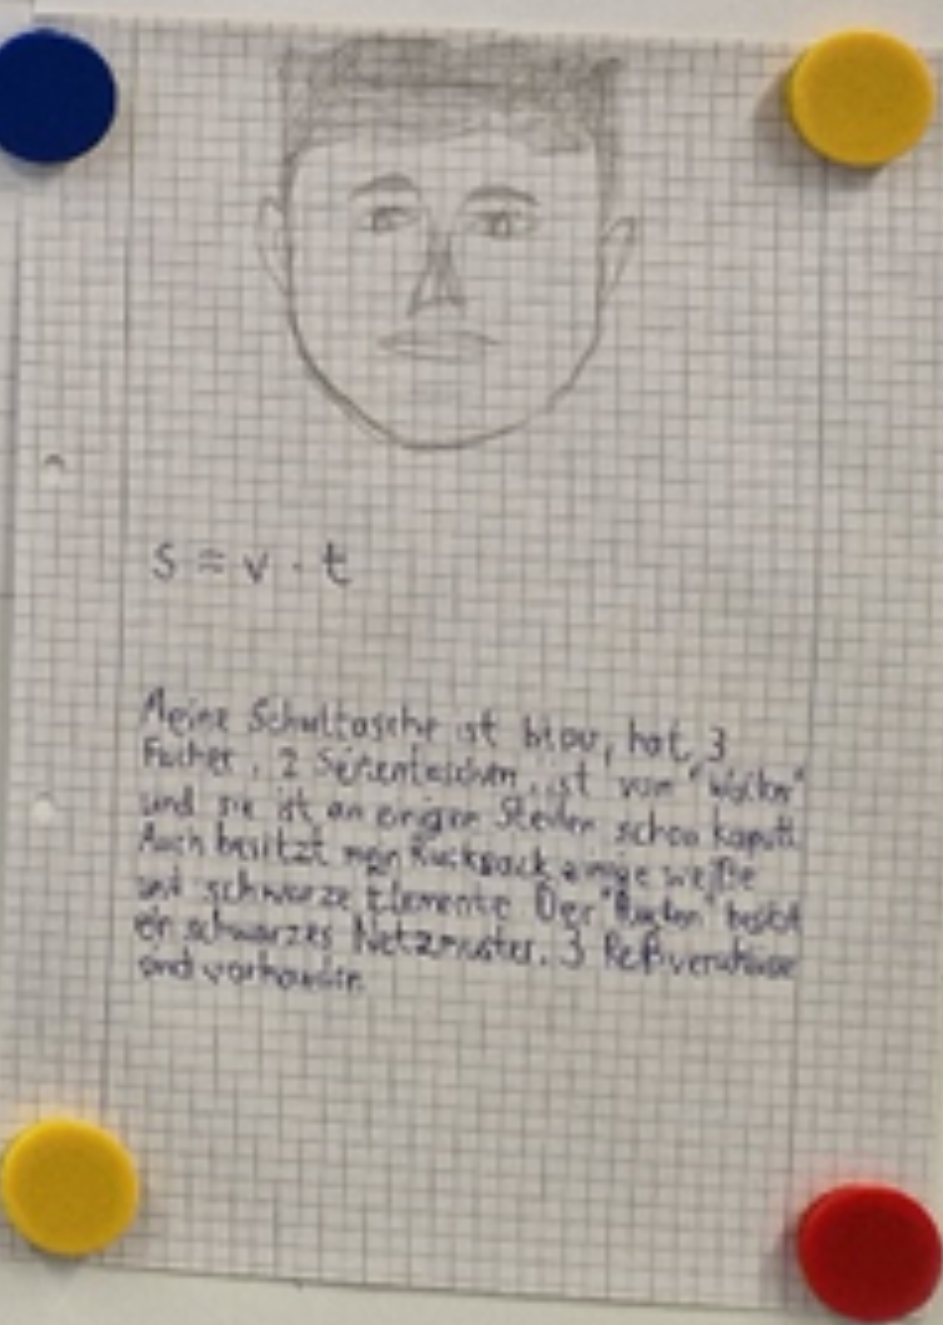 s = v · t
Meine Schultasche ist blau, hat 3
Fächer, 2 Seitentaschen, ist vom
und sie ist an einigen Stellen schon kaputt.
Auch besitzt mein Rucksack einige weiße
und schwarze Elemente. Der "Rücken" besitzt
ein schwarzes Netzmuster. 3 Reißverschlüsse
sind vorhanden.